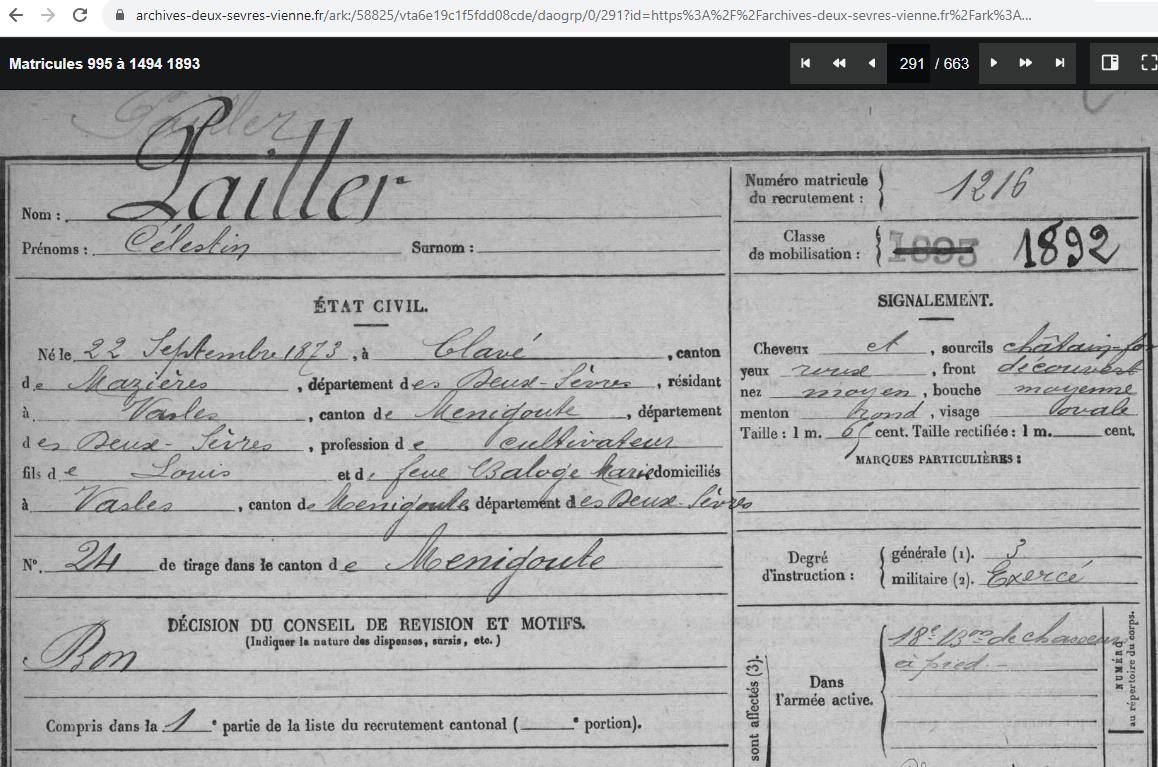 archives-deux-sevres-vienne.fr/ark:/58825/vta6e19c1f5fdd08cde/daogrp/0/291?id=https%3A%2F%2Farchives-deux-sevres-vienne.fr%2Fark%3A...
Matricules 995 à 1494 1893
291 / 663
Pailler
Nom : Pailler
Prénoms : Célestin Surnom :
Numéro matricule du recrutement : 1216
Classe de mobilisation : 1893 1892
ÉTAT CIVIL.
Né le 22 Septembre 1873, à Clavé, canton
de Mazières, département des Deux-Sèvres, résidant
à Vasles, canton de Menigoute, département
des Deux-Sèvres, profession de cultivateur
fils de Louis et de feue Baloge Marie domiciliés
à Vasles, canton de Menigoute département des Deux-Sèvres
N°. 24 de tirage dans le canton de Menigoute
DÉCISION DU CONSEIL DE REVISION ET MOTIFS.
(Indiquer la nature des dispenses, sursis, etc.)
Bon
Compris dans la 1e partie de la liste du recrutement cantonal (e portion).
SIGNALEMENT.
Cheveux et, sourcils châtain-fon
yeux roux, front découvert
nez moyen, bouche moyenne
menton rond, visage ovale
Taille : 1 m. 65 cent. Taille rectifiée : 1 m. cent.
MARQUES PARTICULIÈRES :
Degré d'instruction : générale (1). 3
militaire (2). Exercé
sont affectés (3).
Dans l'armée active.
18e Bon de chasseurs
à pied.
NUMÉRO
au répertoire du corps.